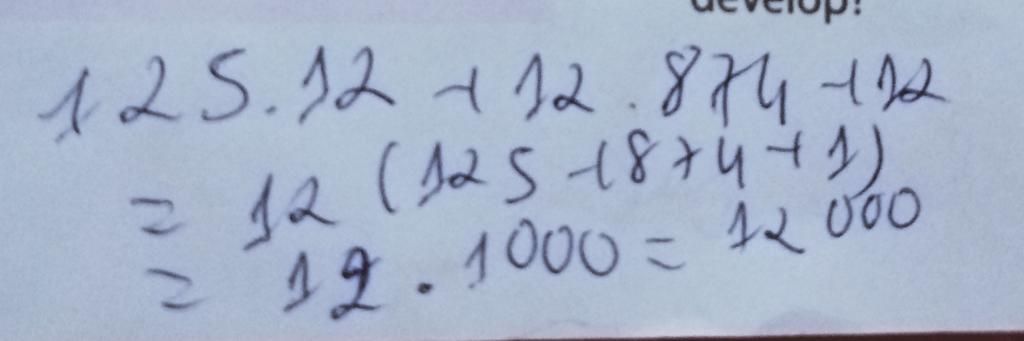 develop!
125.12+12.874+12
= 12 (125+874+1)
= 12.1000 = 12 000